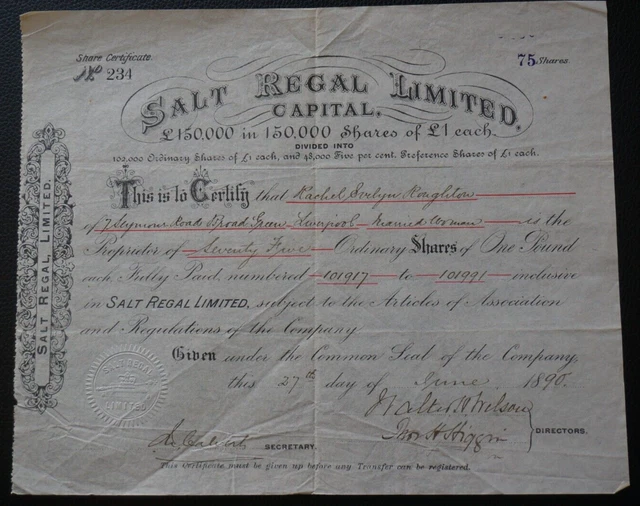 Share Certificate.
No 234
75 Shares
SALT REGAL LIMITED.
CAPITAL,
£150,000 in 150,000 Shares of £1 each.
DIVIDED INTO
Ordinary Shares of £1 each, and Five per cent. Preference Shares of £1 each.
This is to Certify that Rachel Evelyn Houghton
of 7 Seymour Road Broad Green Liverpool Married Woman is the
Proprietor of Seventy Five Ordinary Shares of One Pound
each, Fully Paid, numbered 101917 to 101991 inclusive
in SALT REGAL LIMITED, subject to the Articles of Association
and Regulations of the Company
Given under the Common Seal of the Company,
this 27th day of June 1896.
Walter H Wilson
Thos H Higgin
DIRECTORS.
SECRETARY.
This Certificate must be given up before any Transfer can be registered.
SALT REGAL, LIMITED.
SALT REGAL
LIMITED